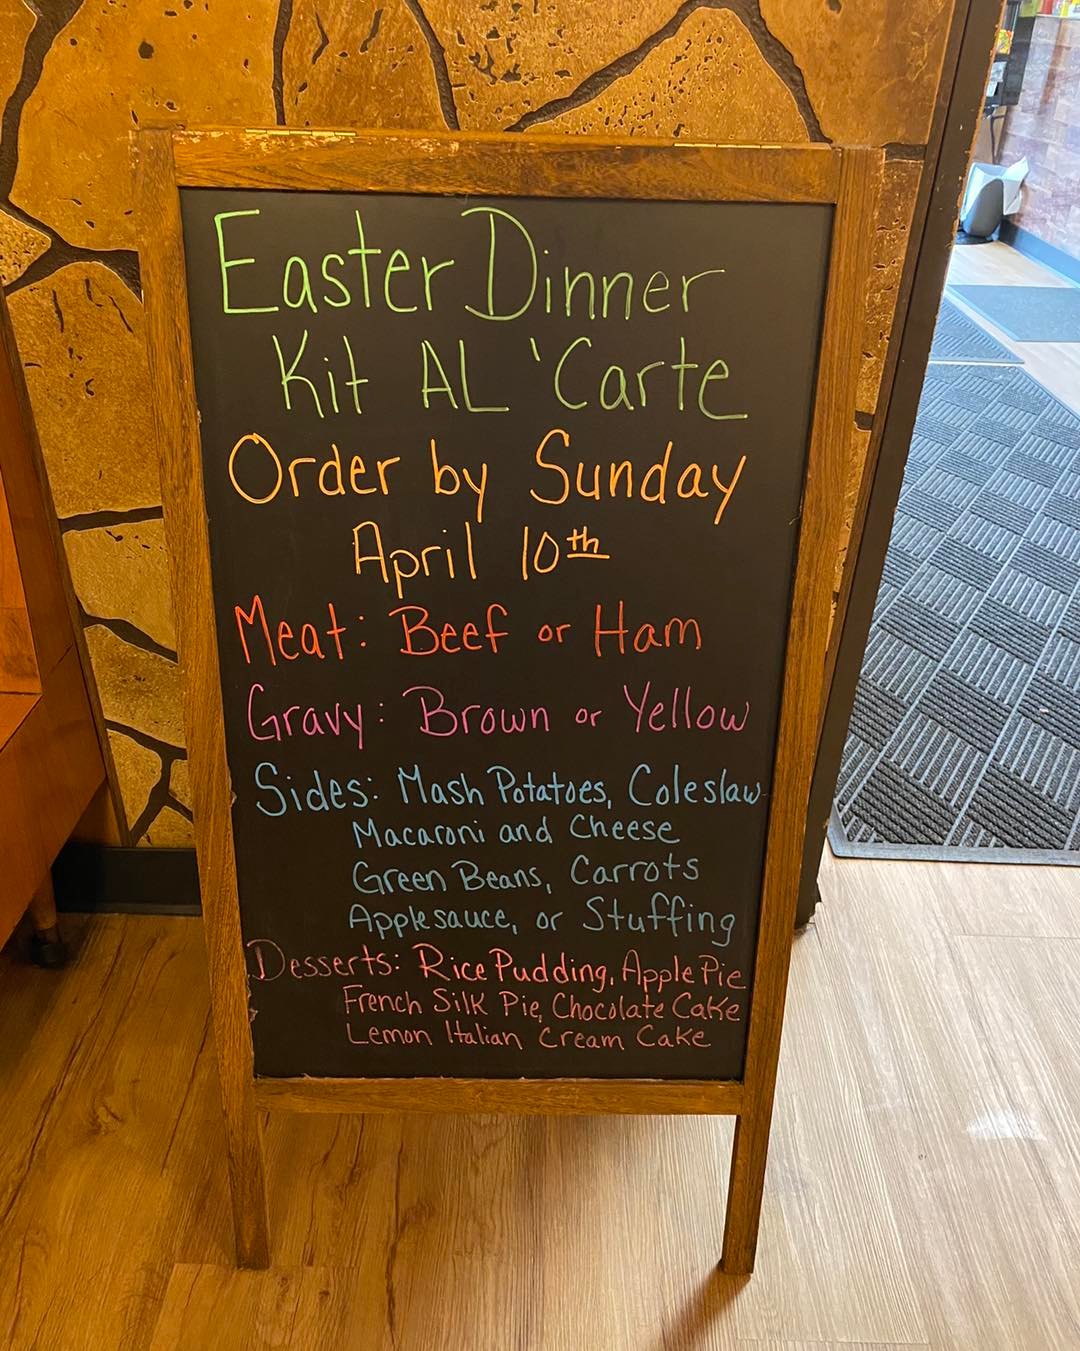 Easter Dinner
Kit AL 'Carte
Order by Sunday
April 10th
Meat: Beef or Ham
Gravy: Brown or Yellow
Sides: Mash Potatoes, Coleslaw
Macaroni and Cheese
Green Beans, Carrots
Applesauce, or Stuffing
Desserts: Rice Pudding, Apple Pie
French Silk Pie, Chocolate Cake
Lemon Italian Cream Cake